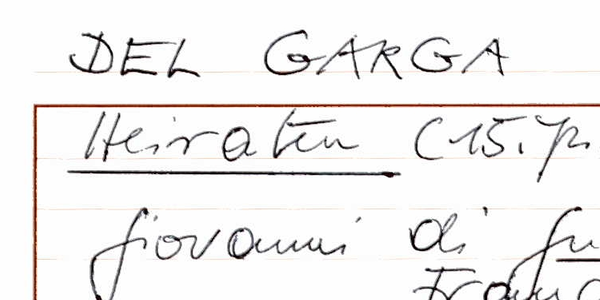 DEL GARGA
Heiraten (15. Jh.
Giovanni di